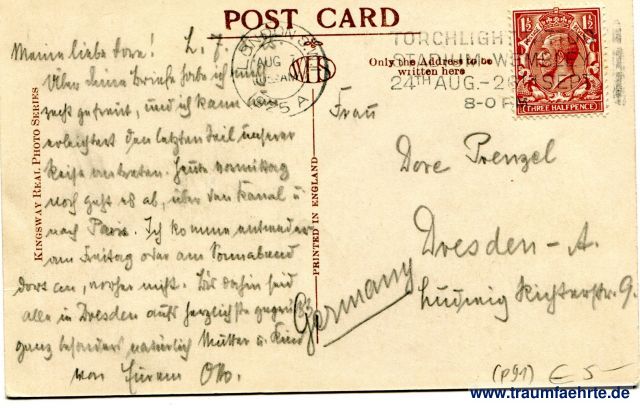 POST CARD
Meine liebe Dore! L. 7.
Über Deine Briefe habe ich mich
gefreut, und ich kann
erleichtert den letzten Teil unserer
Reise antreten. Heute vormittag
noch geht es ab, über den Kanal u
nach Paris. Ich komme entweder
am Freitag oder am Sonnabend
dort an, vorher nicht. Bis dahin seid
alle in Dresden aufs herzlichste gegrüßt
ganz besonders natürlich Mutter u. Kind
von Eurem Otto.
KINGSWAY REAL PHOTO SERIES
PRINTED IN ENGLAND
WHS
Only the Address to be
written here
LONDON
AUG
TORCHLIGHT
24TH AUG.
SEPT
8-0 P
1½ 1½
THREE HALFPENCE
Frau
Dore Prenzel
Dresden-A.
Ludwig Richterstr. 9.
Germany
(P91) E 5-
www.traumfaehrte.de